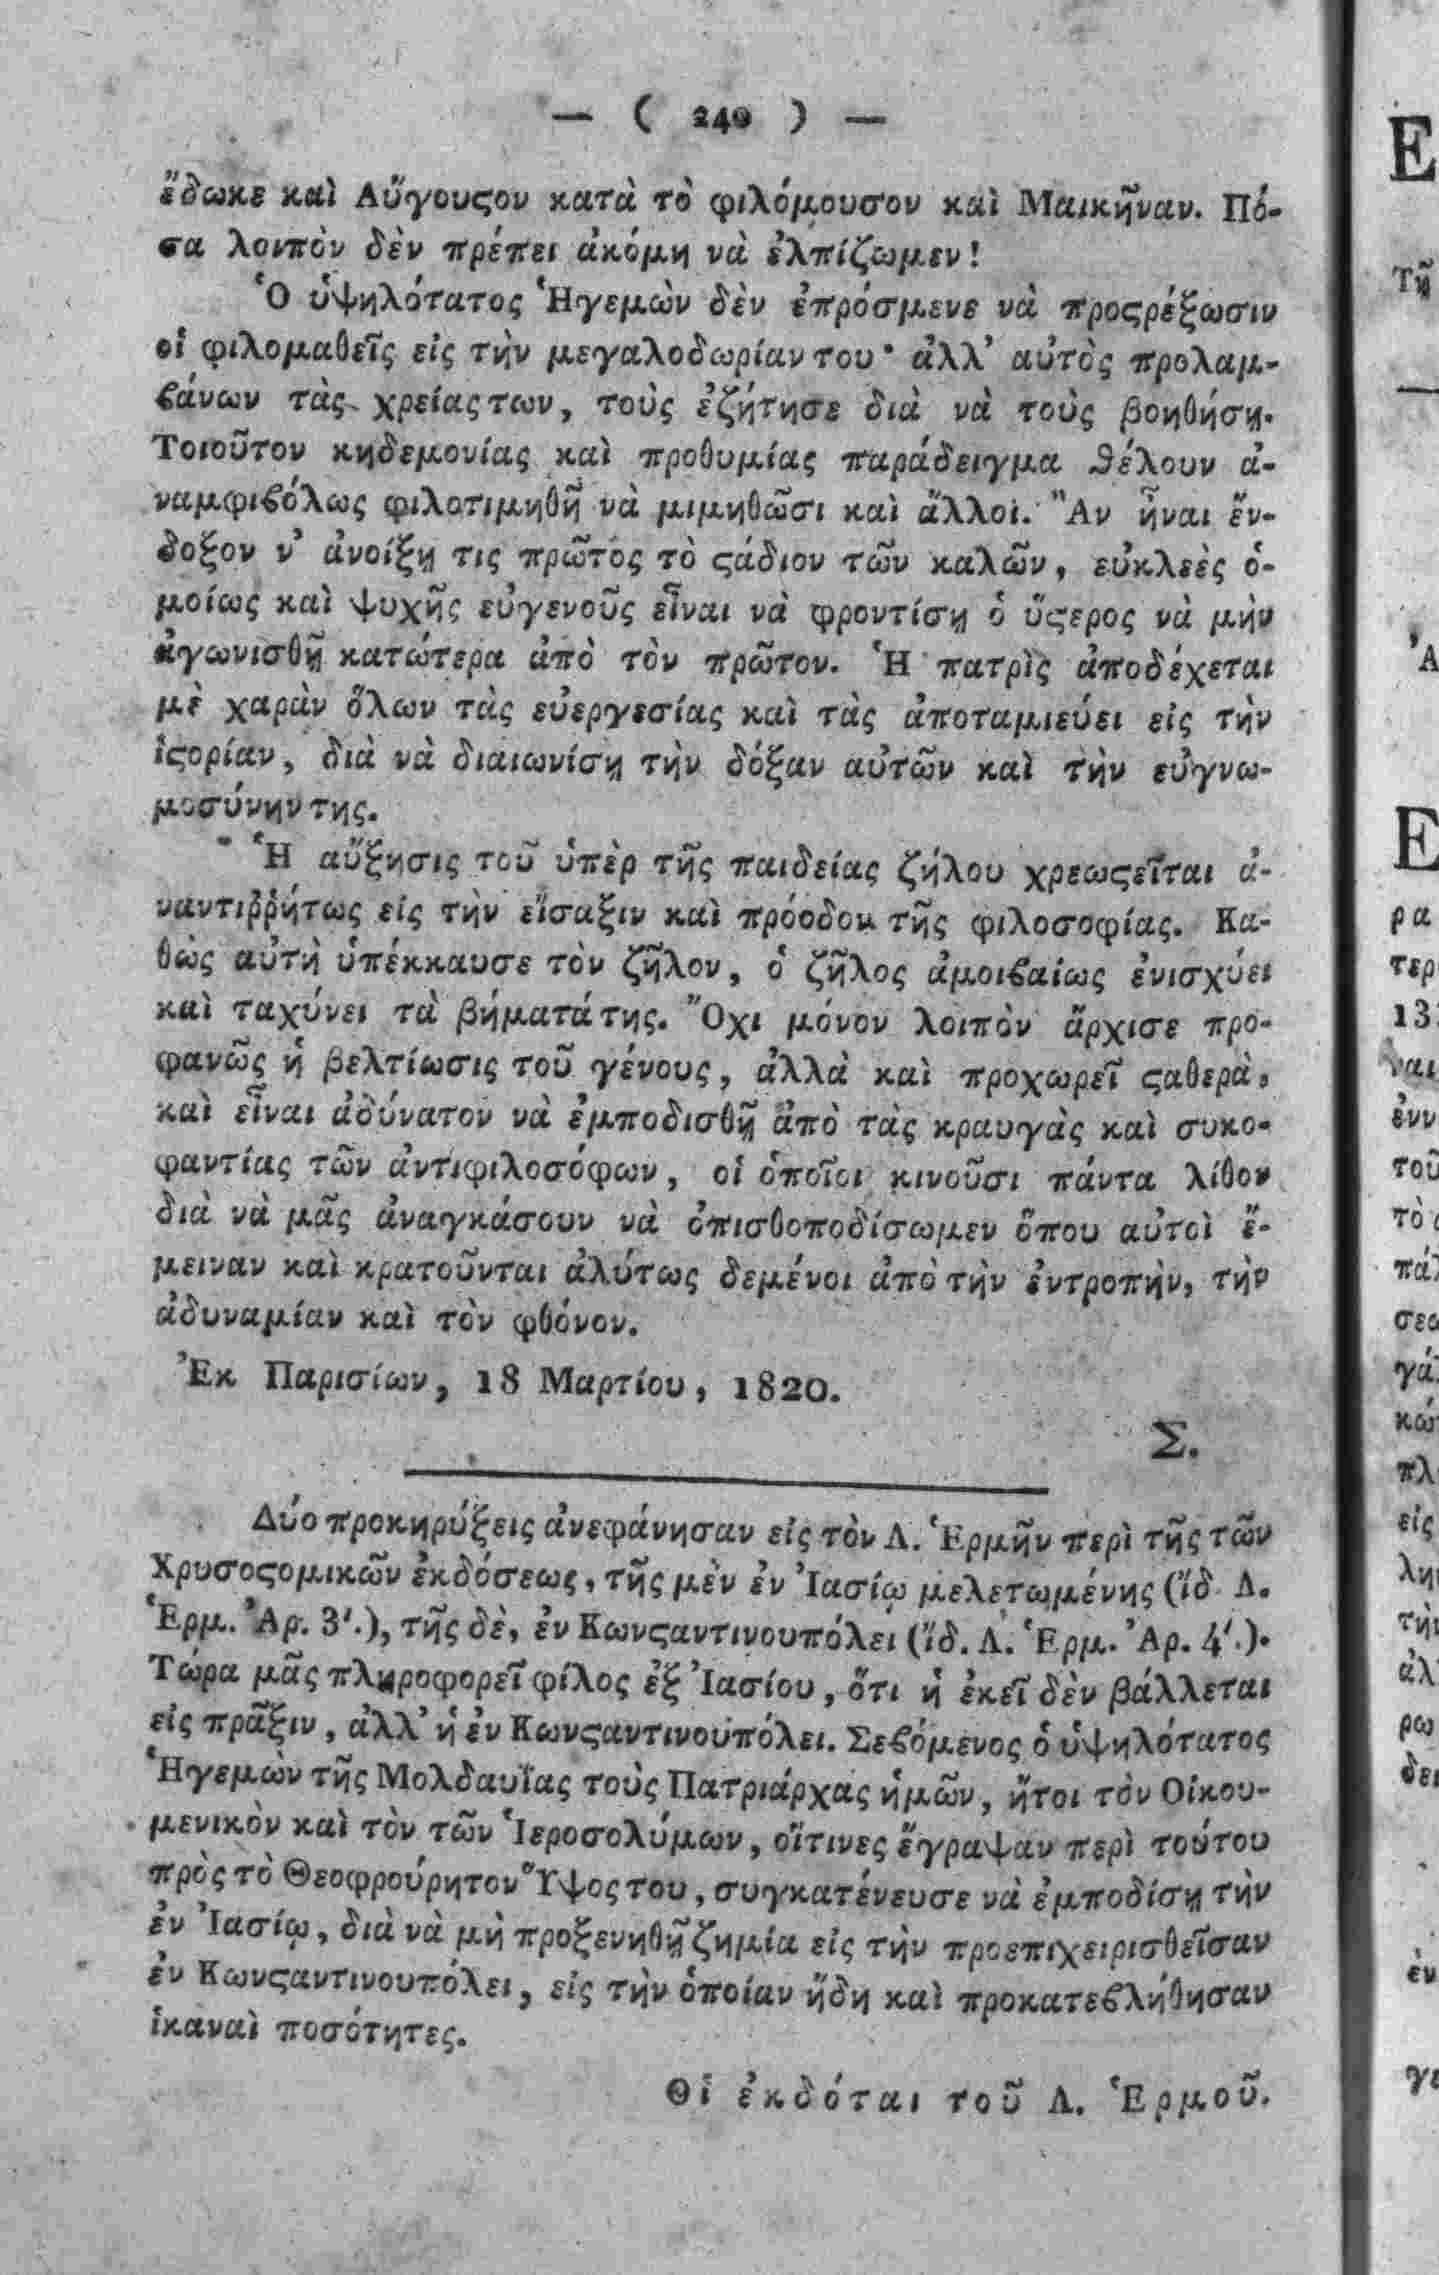 — ( 240 ) —
ἔδωκε καὶ Αὔγουϛον κατὰ τὸ φιλόμουσον καὶ Μαικῆναν. Πό-
σα λοιπὸν δὲν πρέπει ἀκόμη νὰ ἐλπίζωμεν!
Ὁ ὑψηλότατος Ἡγεμὼν δὲν ἐπρόσμενε νὰ προϛρέξωσιν
οἱ φιλομαθεῖς εἰς τὴν μεγαλοδωρίαν του· ἀλλ’ αὐτὸς προλαμ-
ϐάνων τὰς χρείας των, τοὺς ἐζήτησε διὰ νὰ τοὺς βοηθήσῃ.
Τοιοῦτον κηδεμονίας καὶ προθυμίας παράδειγμα ϑέλουν ἀ-
ναμφιϐόλως φιλοτιμηθῆ νὰ μιμηθῶσι καὶ ἄλλοι. Ἂν ἦναι ἔν-
δοξον ν’ ἀνοίξῃ τις πρῶτος τὸ ϛάδιον τῶν καλῶν, εὐκλεὲς ὁ-
μοίως καὶ ψυχῆς εὐγενοῦς εἶναι νὰ φροντίσῃ ὁ ὕϛερος νὰ μὴν
ἀγωνισθῇ κατώτερα ἀπὸ τὸν πρῶτον. Ἡ πατρὶς ἀποδέχεται
μὲ χαρὰν ὅλων τὰς εὐεργεσίας καὶ τὰς ἀποταμιεύει εἰς τὴν
ἱϛορίαν, διὰ νὰ διαιωνίσῃ τὴν δόξαν αὐτῶν καὶ τὴν εὐγνω-
μοσύνην της.
Ἡ αὔξησις τοῦ ὑπὲρ τῆς παιδείας ζήλου χρεωϛεῖται ἀ-
ναντιῤῥήτως εἰς τὴν εἴσαξιν καὶ πρόοδον τῆς φιλοσοφίας. Κα-
θὼς αὐτὴ ὑπέκκαυσε τὸν ζῆλον, ὁ ζῆλος ἀμοιϐαίως ἐνισχύει
καὶ ταχύνει τὰ βήματά της. Ὄχι μόνον λοιπὸν ἄρχισε προ-
φανῶς ἡ βελτίωσις τοῦ γένους, ἀλλὰ καὶ προχωρεῖ ϛαθερὰ,
καὶ εἶναι ἀδύνατον νὰ ἐμποδισθῇ ἀπὸ τὰς κραυγὰς καὶ συκο-
φαντίας τῶν ἀντιφιλοσόφων, οἱ ὁποῖοι κινοῦσι πάντα λίθον
διὰ νὰ μᾶς ἀναγκάσουν νὰ ὀπισθοποδίσωμεν ὅπου αὐτοὶ ἔ-
μειναν καὶ κρατοῦνται ἀλύτως δεμένοι ἀπὸ τὴν ἐντροπὴν, τὴν
ἀδυναμίαν καὶ τὸν φθόνον.
Ἐκ Παρισίων, 18 Μαρτίου, 1820.
Σ.
Δύο προκηρύξεις ἀνεφάνησαν εἰς τὸν Λ. Ἑρμῆν περὶ τῆς τῶν
Χρυσοϛομικῶν ἐκδόσεως, τῆς μὲν ἐν Ἰασίῳ μελετωμένης (ἴδ. Λ.
Ἑρμ. Ἀρ. 3′.), τῆς δὲ, ἐν Κωνϛαντινουπόλει (ἴδ. Λ. Ἑρμ. Ἀρ. 4′.).
Τώρα μᾶς πληροφορεῖ φίλος ἐξ Ἰασίου, ὅτι ἡ ἐκεῖ δὲν βάλλεται
εἰς πρᾶξιν, ἀλλ’ ἡ ἐν Κωνϛαντινουπόλει. Σεϐόμενος ὁ ὑψηλότατος
Ἡγεμὼν τῆς Μολδαυΐας τοὺς Πατριάρχας ἡμῶν, ἤτοι τὸν Οἰκου-
μενικὸν καὶ τὸν τῶν Ἱεροσολύμων, οἵτινες ἔγραψαν περὶ τούτου
πρὸς τὸ Θεοφρούρητον Ὕψος του, συγκατένευσε νὰ ἐμποδίσῃ τὴν
ἐν Ἰασίῳ, διὰ νὰ μὴ προξενηθῇ ζημία εἰς τὴν προεπιχειρισθεῖσαν
ἐν Κωνϛαντινουπόλει, εἰς τὴν ὁποίαν ἤδη καὶ προκατεϐλήθησαν
ἱκαναὶ ποσότητες.
Οἱ ἐκδόται τοῦ Λ. Ἑρμοῦ.